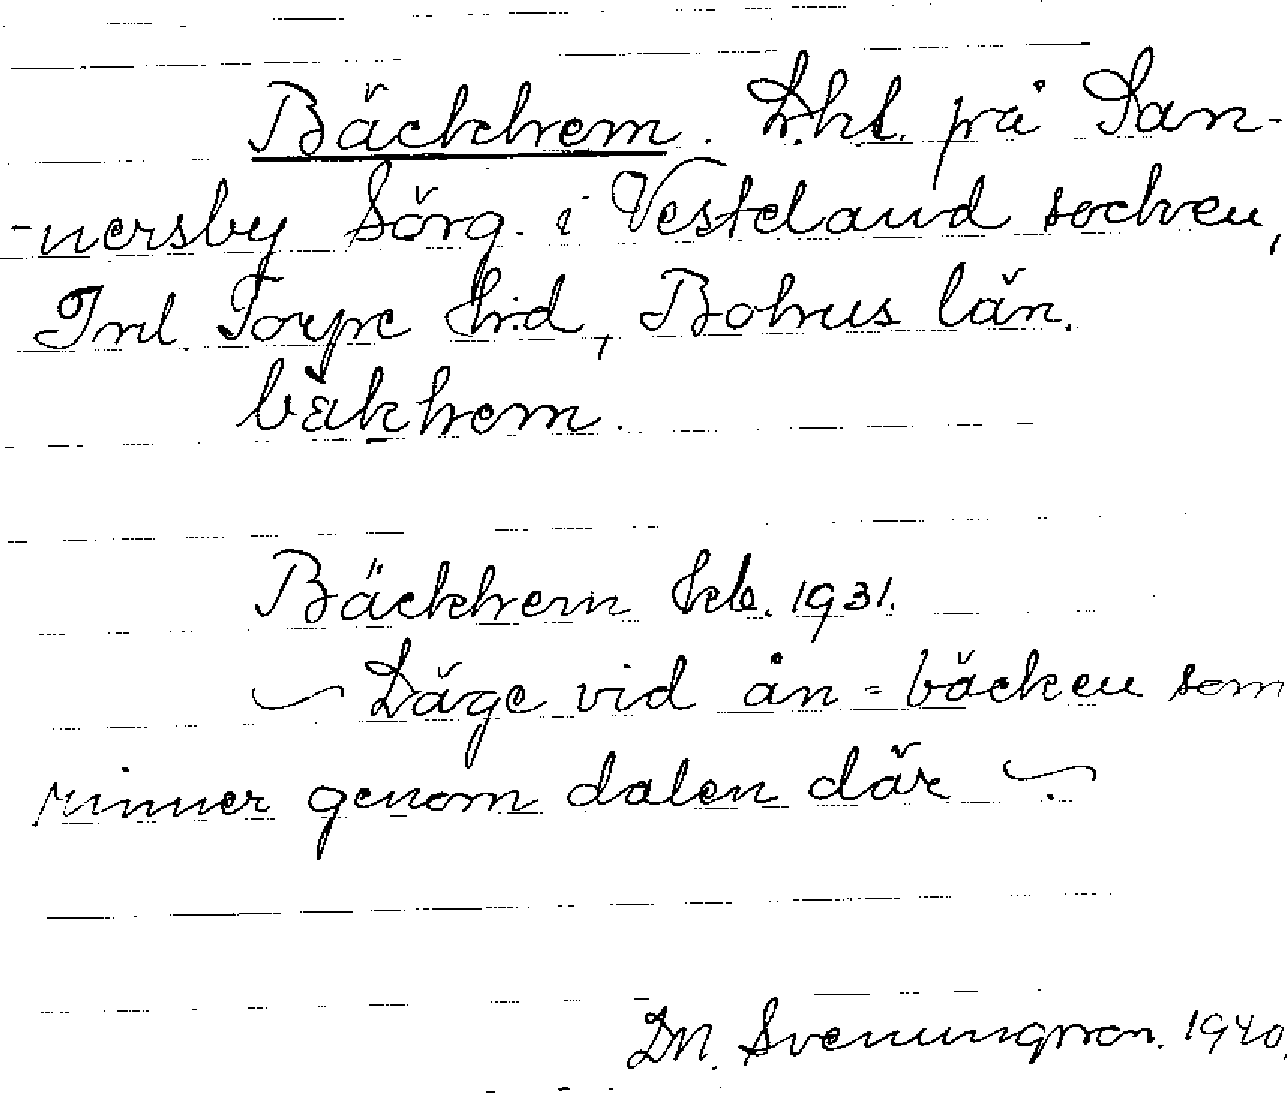 Bäckhem. Lht. på San-
-nersby Sörg. i Vesteland socken,
Inl. Torpe hd, Bohus län.
bäkhem.
Bäckhem kb. 1931.
~ Läge vid ån = bäcken som
rinner genom dalen där ~.
D.M. Svenungsson. 1940.